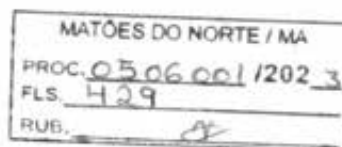 MATÕES DO NORTE / MA
PROC. 0506001 /2023
FLS. 429
RUB.